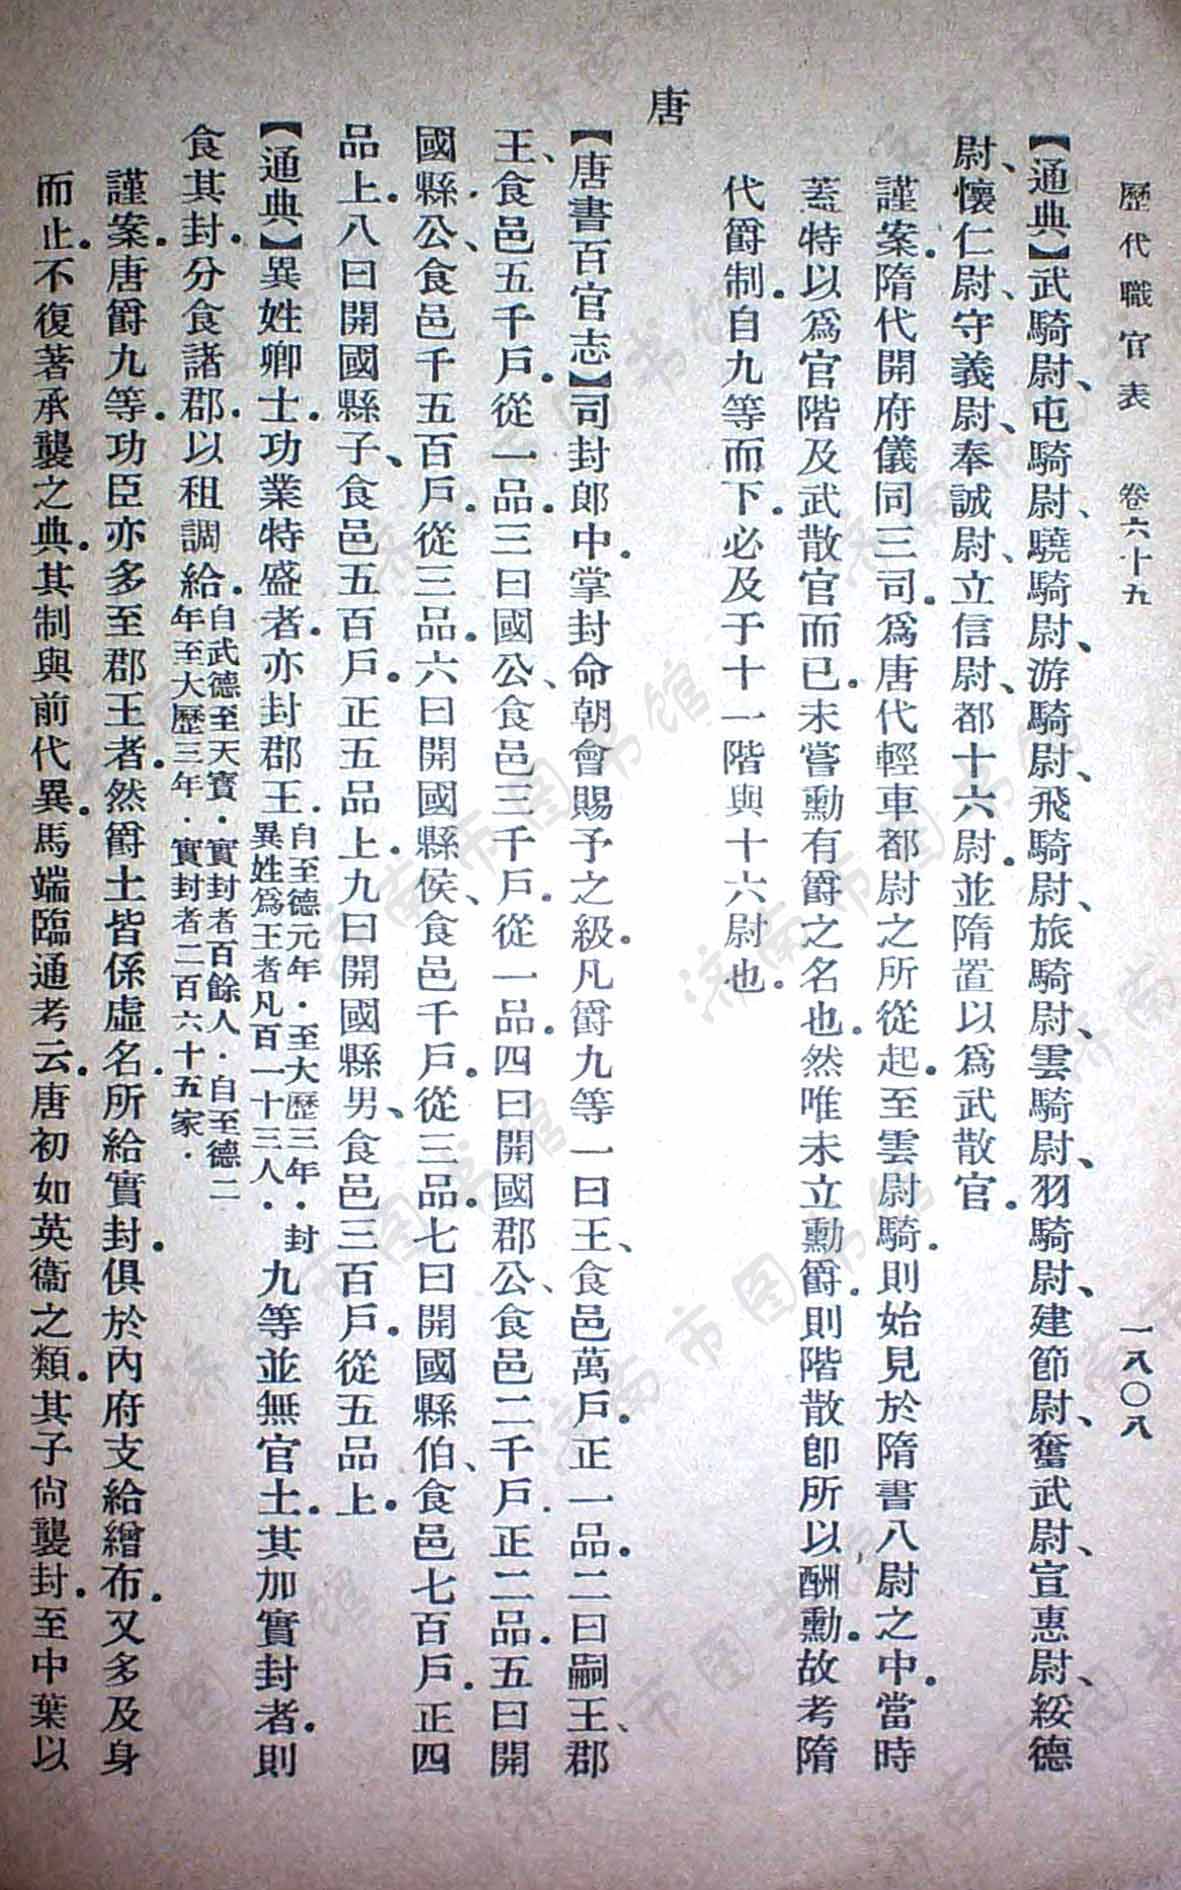 歷代職官表　卷六十九　一八〇八
【通典】武騎尉、屯騎尉、驍騎尉、游騎尉、飛騎尉、旅騎尉、雲騎尉、羽騎尉、建節尉、奮武尉、宣惠尉、綏德
尉、懷仁尉、守義尉、奉誠尉、立信尉、都十六尉。並隋置以爲武散官。
謹案。隋代開府儀同三司。爲唐代輕車都尉之所從起。至雲尉騎。則始見於隋書八尉之中。當時
蓋特以爲官階及武散官而已。未嘗勳有爵之名也。然唯未立勳爵。則階散卽所以酬勳。故考隋
代爵制。自九等而下。必及于十一階與十六尉也。
唐
【唐書百官志】司封郎中。掌封命朝會賜予之級。凡爵九等一曰王、食邑萬戶。正一品。二曰嗣王、郡
王、食邑五千戶。從一品。三曰國公、食邑三千戶。從一品。四曰開國郡公、食邑二千戶。正二品。五曰開
國縣公、食邑千五百戶。從三品。六曰開國縣侯、食邑千戶。從三品。七曰開國縣伯、食邑七百戶。正四
品上。八曰開國縣子、食邑五百戶。正五品上。九曰開國縣男、食邑三百戶。從五品上。
【通典】異姓卿士。功業特盛者。亦封郡王。自至德元年．至大歷三年．封異姓爲王者凡百一十三人．九等並無官土。其加實封者。則
食其封。分食諸郡。以租調給。自武德至天寶．實封者百餘人．自至德二年至大歷三年．實封者二百六十五家．
謹案。唐爵九等。功臣亦多至郡王者。然爵土皆係虛名。所給實封。俱於內府支給繒布。又多及身
而止。不復著承襲之典。其制與前代異。馬端臨通考云。唐初如英衞之類。其子尙襲封。至中葉以
济南市图书馆